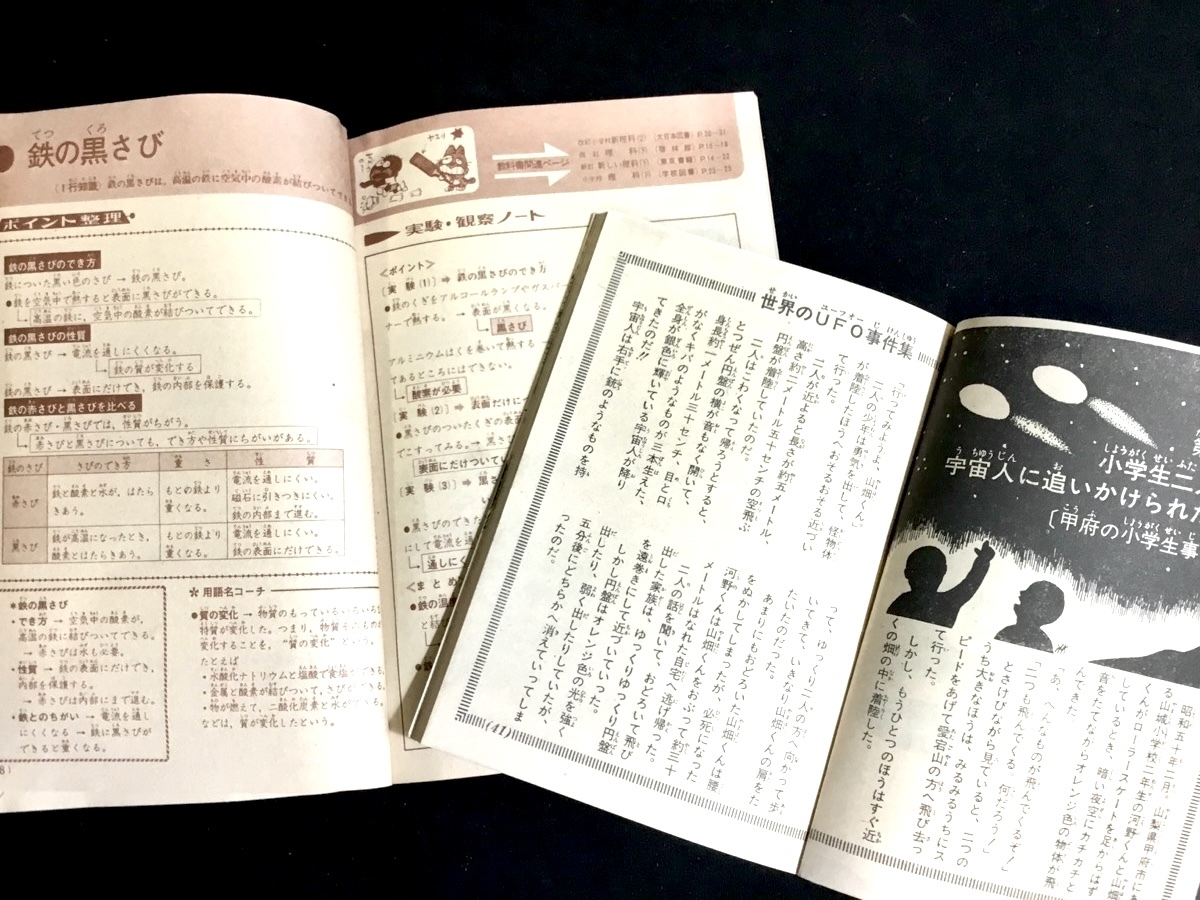 鉄の黒さび
(1行知識) 鉄の黒さびは、高温の鉄に空気中の酸素が結びついてでき
ポイント整理
鉄の黒さびのでき方
鉄についた黒い色のさび → 鉄の黒さび。
●鉄を空気中で熱すると表面に黒さびができる。
高温の鉄に、空気中の酸素が結びついてできる。
鉄の黒さびの性質
鉄の黒さび → 電流を通しにくくなる。
鉄の質が変化する
鉄の黒さび → 表面にだけでき、鉄の内部を保護する。
鉄の赤さびと黒さびを比べる
鉄の赤さび・黒さびでは、性質がちがう。
赤さびと黒さびについても、でき方や性質にちがいがある。
鉄のさび さびのでき方 重さ 性質
赤さび 鉄と酸素と水が、はたらきあう。 もとの鉄より重くなる。 電流を通しにくい。
磁石に引きつきにくい。
鉄の内部まで進む。
黒さび 鉄が高温になったとき、酸素とはたらきあう。 もとの鉄より重くなる。 電流を通しにくい。
鉄の表面にだけできる。
*鉄の黒さび
・でき方 → 空気中の酸素が、
高温の鉄に結びついてできる。
→ 赤さびは水も必要。
・性質 → 鉄の表面にだけでき、
内部を保護する。
→ 赤さびは内部にまで進む。
・鉄とのちがい → 電流を通し
にくくなる → 鉄に黒さびが
できると重くなる。
用語名コーチ
●質の変化 → 物質のもっているいろいろな
特質が変化した。つまり、物質そのものが
変化することを、“質の変化”という。
たとえば
・水酸化ナトリウムと塩酸で食塩ができる。
・金属と酸素が結びついて、さびができる。
・物が燃えて、二酸化炭素と水ができる。
などは、質が変化したという。
ヤスリ
教科書関連ページ
改訂小学校新理科(2)(大日本図書) P.20〜21
改訂 理科(下)(啓林館) P.15〜18
新訂 新しい理科(下)(東京書籍) P.14〜22
小学校 理科(下)(学校図書) P.22〜25
実験・観察ノート
<ポイント>
[実験(1)] ⇒ 鉄の黒さびのでき方
●鉄のくぎをアルコールランプやガスバー
ナーで熱する。→ 表面が黒くなる。
黒さび
アルミニウムはくを巻いて熱する →
てあるところにはできない。
酸素が必要
[実験(2)] ⇒ 表面だけに
●黒さびのついたくぎの表面
でこすってみる。→ 黒さ
表面にだけついてい
[実験(3)] ⇒ 黒さ
●黒さびのできた
にして電流を通
通しにく
<まとめ
●鉄の温度
世界のUFO事件集
「行ってみようよ、山畑くん」
二人の少年は勇気を出して、怪物体
が着陸したほうへおそるおそる近づい
て行った。
二人が近よると長さが約五メートル、
高さ約二メートル五十センチの空飛ぶ
円盤が着陸していたのだ。
二人はこわくなって帰ろうとすると、
とつぜん円盤の横が音もなく開いて、
身長約一メートル三十センチ、目と口
がなくキバのようなものが三本生えた、
全身が銀色に輝いている宇宙人が降り
てきたのだ!!
宇宙人は右手に銃のようなものを持
って、ゆっくり二人の方へ向かって歩
いてきて、いきなり山畑くんの肩をた
たいたのだった。
あまりにもおどろいた山畑くんは腰
をぬかしてしまったが、必死になった
河野くんは山畑くんをおぶって約三十
メートルはなれた自宅へ逃げ帰った。
二人の話を聞いて、おどろいて飛び
出した家族は、ゆっくりゆっくり円盤
を遠巻きにして近づいていった。
しかし円盤はオレンジ色の光を強く
出したり、弱く出したりしていたが、
五分後にどちらかへ消えていってしま
ったのだ。
(41)
小学生二
宇宙人に追いかけられた
〔甲府の小学生事
昭和五十年二月。山梨県甲府市にあ
る山城小学校二年生の河野くんと山畑
くんがローラースケートを足からはず
しているとき、暗い夜空にカチカチと
音をたてながらオレンジ色の物体が飛
んできた。
「あ、へんなものが飛んでくるぞ!」
「二つも飛んでくる。何だろう!」
とさけびながら見ていると、二つの
うち大きなほうは、みるみるうちにス
ピードをあげて愛宕山の方へ飛び去っ
て行った。
しかし、もうひとつのほうはすぐ近
くの畑の中に着陸した。